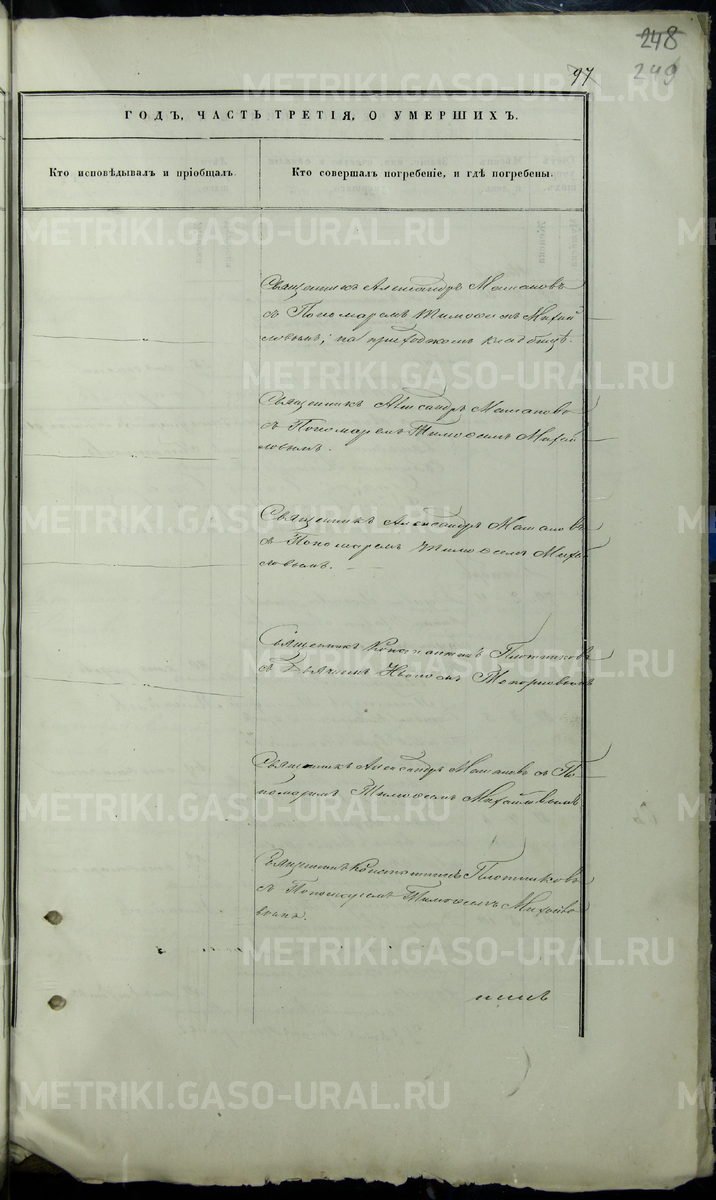 248
249
97
ГОДЪ, ЧАСТЬ ТРЕТІЯ, О УМЕРШИХЪ.
Кто исповѣдывалъ и пріобщалъ.
Кто совершалъ погребеніе, и гдѣ погребены.
Священникъ Александръ
съ Пономаремъ Тимофеемъ Михай
ловымъ; на приходскомъ кладбищѣ.
Священникъ Александръ
съ Пономаремъ Тимофеемъ Михай
ловымъ.
Священникъ Александръ
съ Пономаремъ Тимофеемъ Михай
ловымъ.
Священникъ Константинъ Плотниковъ
съ Дьячкомъ Топорковымъ
Священникъ Александръ съ По
номаремъ Тимофеемъ Михайловымъ
Священникъ Константинъ Плотниковъ
съ Пономаремъ Тимофеемъ Михайло
вымъ.
METRIKI.GASO-URAL.RU